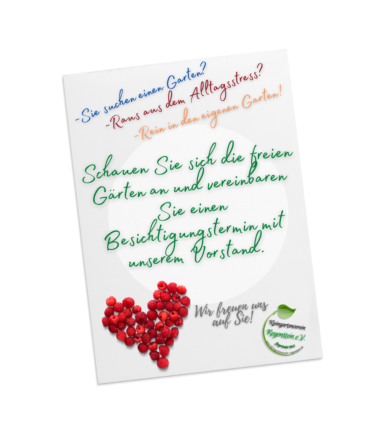 -Sie suchen einen Garten?
-Raus aus dem Alltagsstress?
-Rein in den eigenen Garten!
Schauen Sie sich die freien
Gärten an und vereinbaren
Sie einen
Besichtigungstermin mit
unserem Vorstand.
Wir freuen uns
auf Sie!
Kleingartenverein